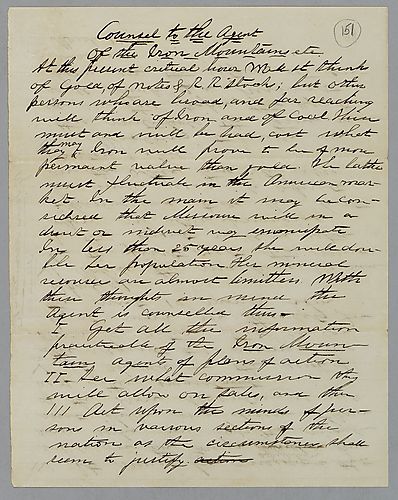 151
Counsel to the Agent
of the Iron Mountains etc.
At this present critical hour Wall st thinks
of Gold, of notes & R. R. Stocks; but other
persons who are broad, and far reaching
will think of Iron and of Coal. These
must and will be had, cost what
they may. Iron will prove to be of more
permanent value than gold. The latter
must fluctuate in the American mar-
ket. In the main it may be con-
sidered that Missouri will in a
direct or indirect way emancipate
In less than 25 years she will dou-
ble her population. Her mineral
resources are almost limitless. With
these thoughts in mind the
Agent is counselled thus:
I Get all the information
practicable of the Iron Moun-
tain agents of plans of action
II. See what commission they
will allow on sales, and then
III Act upon the minds of per-
sons in various sections of the
nation as the circumstances shall
seem to justify action